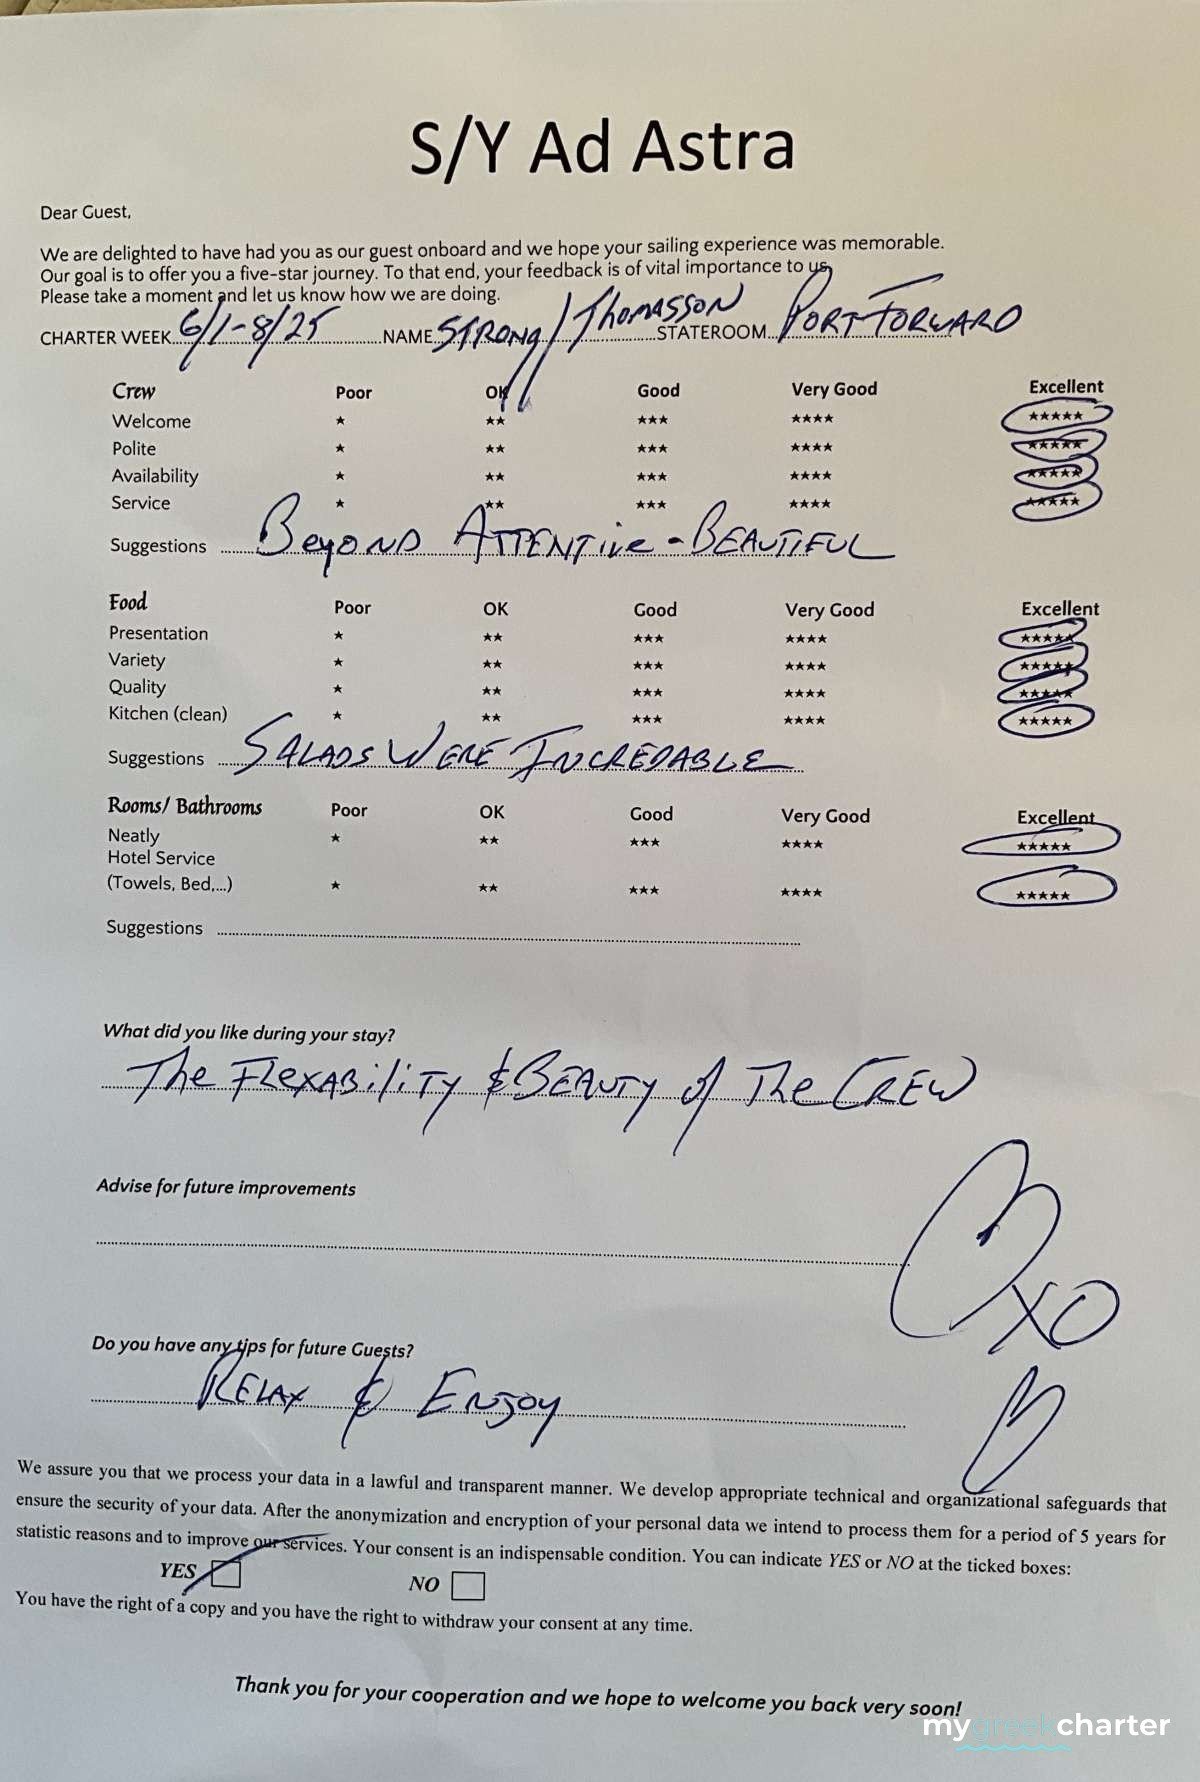 S/Y Ad Astra
Dear Guest,
We are delighted to have had you as our guest onboard and we hope your sailing experience was memorable.
Our goal is to offer you a five-star journey. To that end, your feedback is of vital importance to us.
Please take a moment and let us know how we are doing.
CHARTER WEEK 6/1-8/25 NAME STRONG/THOMASSON STATEROOM PORT FORWARD
Crew Poor OK Good Very Good Excellent
Welcome ★ ★★ ★★★ ★★★★ ★★★★★
Polite ★ ★★ ★★★ ★★★★ ★★★★★
Availability ★ ★★ ★★★ ★★★★ ★★★★★
Service ★ ★★ ★★★ ★★★★ ★★★★★
Suggestions BEYOND ATTENTIVE - BEAUTIFUL
Food Poor OK Good Very Good Excellent
Presentation ★ ★★ ★★★ ★★★★ ★★★★★
Variety ★ ★★ ★★★ ★★★★ ★★★★★
Quality ★ ★★ ★★★ ★★★★ ★★★★★
Kitchen (clean) ★ ★★ ★★★ ★★★★ ★★★★★
Suggestions SALADS WERE INCREDABLE
Rooms/ Bathrooms Poor OK Good Very Good Excellent
Neatly ★ ★★ ★★★ ★★★★ ★★★★★
Hotel Service
(Towels, Bed,...) ★ ★★ ★★★ ★★★★ ★★★★★
Suggestions
What did you like during your stay?
The FLEXABiliTY & BEAUTY of The CREW
Advise for future improvements
XO
Do you have any tips for future Guests?
RELAX & ENJOY
We assure you that we process your data in a lawful and transparent manner. We develop appropriate technical and organizational safeguards that
ensure the security of your data. After the anonymization and encryption of your personal data we intend to process them for a period of 5 years for
statistic reasons and to improve our services. Your consent is an indispensable condition. You can indicate YES or NO at the ticked boxes:
YES NO
You have the right of a copy and you have the right to withdraw your consent at any time.
Thank you for your cooperation and we hope to welcome you back very soon!
mygreekcharter